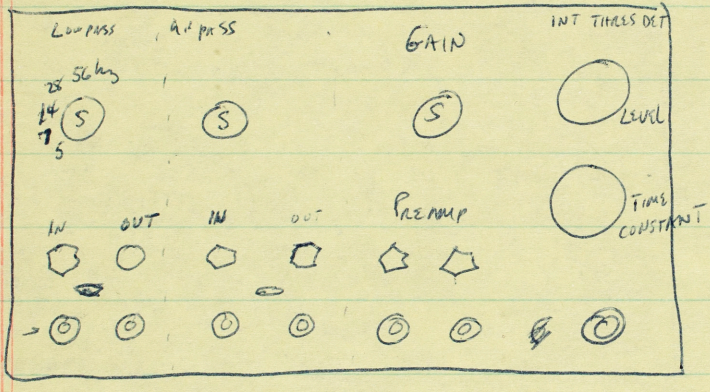 LOWPASS HI PASS GAIN INT THRES DET
28 56 khz
14 S S S LEVEL
7
5
TIME
CONSTANT
IN OUT IN OUT PREAMP